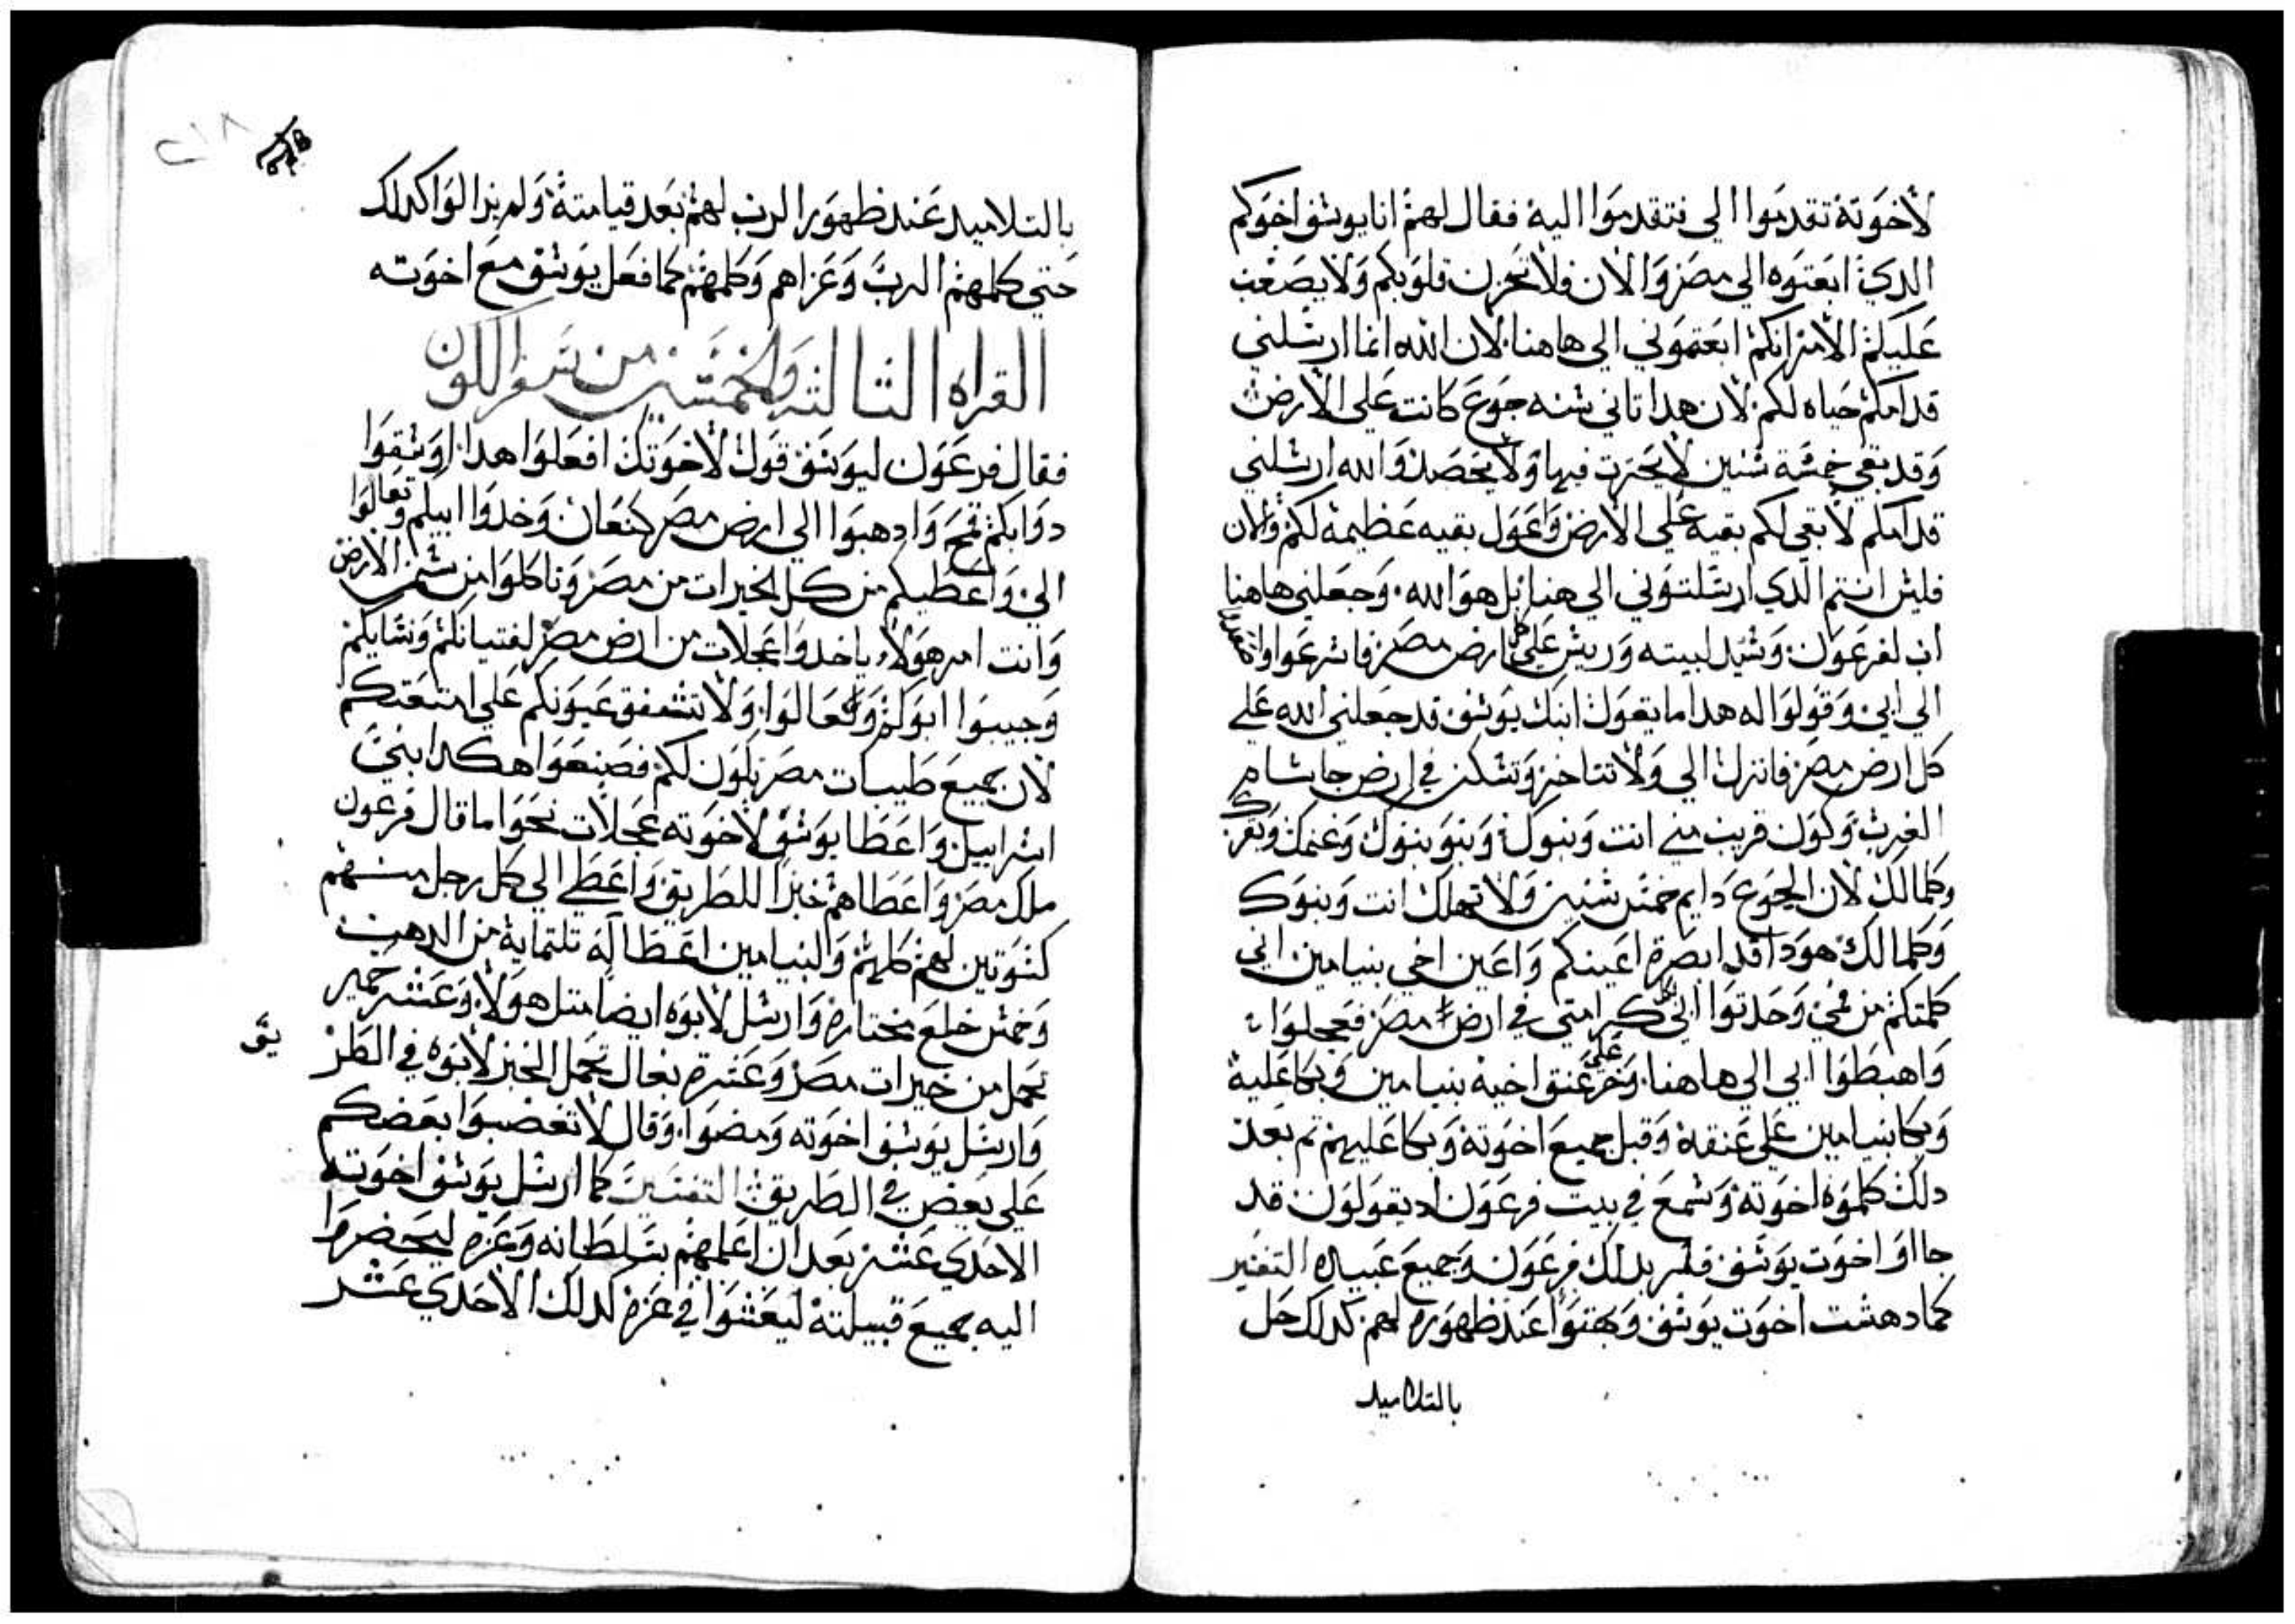 لأخوته تقدموا الي فتقدموا اليه فقال لهم انا يوسف اخوكم
الدي ابعتوه الي مصر والان فلا تحزن قلوبكم ولا يصعب
عليكم الامر انكم ابعتموني الي هاهنا لان الله انما ارسلني
قدامكم حياه لكم لان هدا تاني سنه جوع كانت علي الارض
وقد بقي خمسة سنين لا يحرت فيها ولا يحصد والله ارسلني
قدامكم لأبقي لكم بقيه علي الارض واعول بقيه عظيمة لكم والان
فليس انتم الدي ارسلتوني الي هنا بل هو الله وجعلني هاهنا
اب لفرعون وسيد لبيته وريس علي كل ارض مصر فاسرعوا واصعدوا
الي ابي وقولوا له هدا ما يقول ابنك يوسف قد جعلني الله علي
كل ارض مصر فانزل الي ولا تتاخر وتسكن في ارض جاسام
الغرب وكون قريب مني انت وبنوك وبنو بنوك وغنمك وبقرك
وكلما لك لان الجوع دايم خمس سنين ولا تهلك انت وبنوك
وكلما لك هودا قد ابصرة اعينكم واعين اخي بنيامين اني
كلمتكم من فمي وحدتوا ابي كرامتي في ارض مصر فعجلوا
واهبطوا ابي الي هاهنا وخر علي عنق اخيه بنيامين وبكا عليه
وبكا بنيامين علي عنقه وقبل جميع اخوته وبكا عليهم تم بعد
دلك كلموه اخوته وسمع في بيت فرعون اد يقولون قد
جااو اخوت يوسف فسر بدلك فرعون وجميع عبيده التفسير
كما دهشت اخوت يوسف وبهتوا عند ظهوره لهم كدلك حل
بالتلاميد
بالتلاميد عند ظهور الرب لهم بعد قيامته ولم يزالوا كدلك
حتي كلمهم الرب وعزاهم وكلمهم كما فعل يوسف مع اخوته
القراه التالته والخمسين من سفر الكون
فقال فرعون ليوسف قول لأخوتك افعلوا هدا اوسقوا
دوابكم قمح وادهبوا الي ارض مصر كنعان وخدوا ابيكم وتعالوا
الي واعطيكم من كل الخيرات من مصر وتاكلوا من سمن الارض
وانت امر هولاء ياخدوا عجلات من ارض مصر لفتيانكم ونسايكم
وجيبوا ابوكم وتعالوا ولا تشفق عيونكم علي امتعتكم
لان جميع طيبات مصر تكون لكم فصنعوا هكدا بني
اسراييل واعطا يوسف لأخوته عجلات نحوا ما قال فرعون
ملك مصر واعطاهم خبزا للطريق واعطي الي كل رجل منهم
كسوتين لهم كلهم والبنيامين اعطا له تلتماية من الدهب
وخمس خلع مختاره وارسل لأبوه ايضا متل هولاء وعشر حمير
تحمل من خيرات مصر وعشرة بغال تحمل الخبز لأبوه في الطر
يق
وارسل يوسف اخوته ومضوا وقال لا تغضبوا بعضكم
علي بعض في الطريق التفسير كما ارسل يوسف اخوته
الاحدي عشر بعد ان اعلمهم بسلطانه وعزه ليحضروا
اليه بجميع قبيلته ليعشوا في عزه كدلك الاحدي عشر